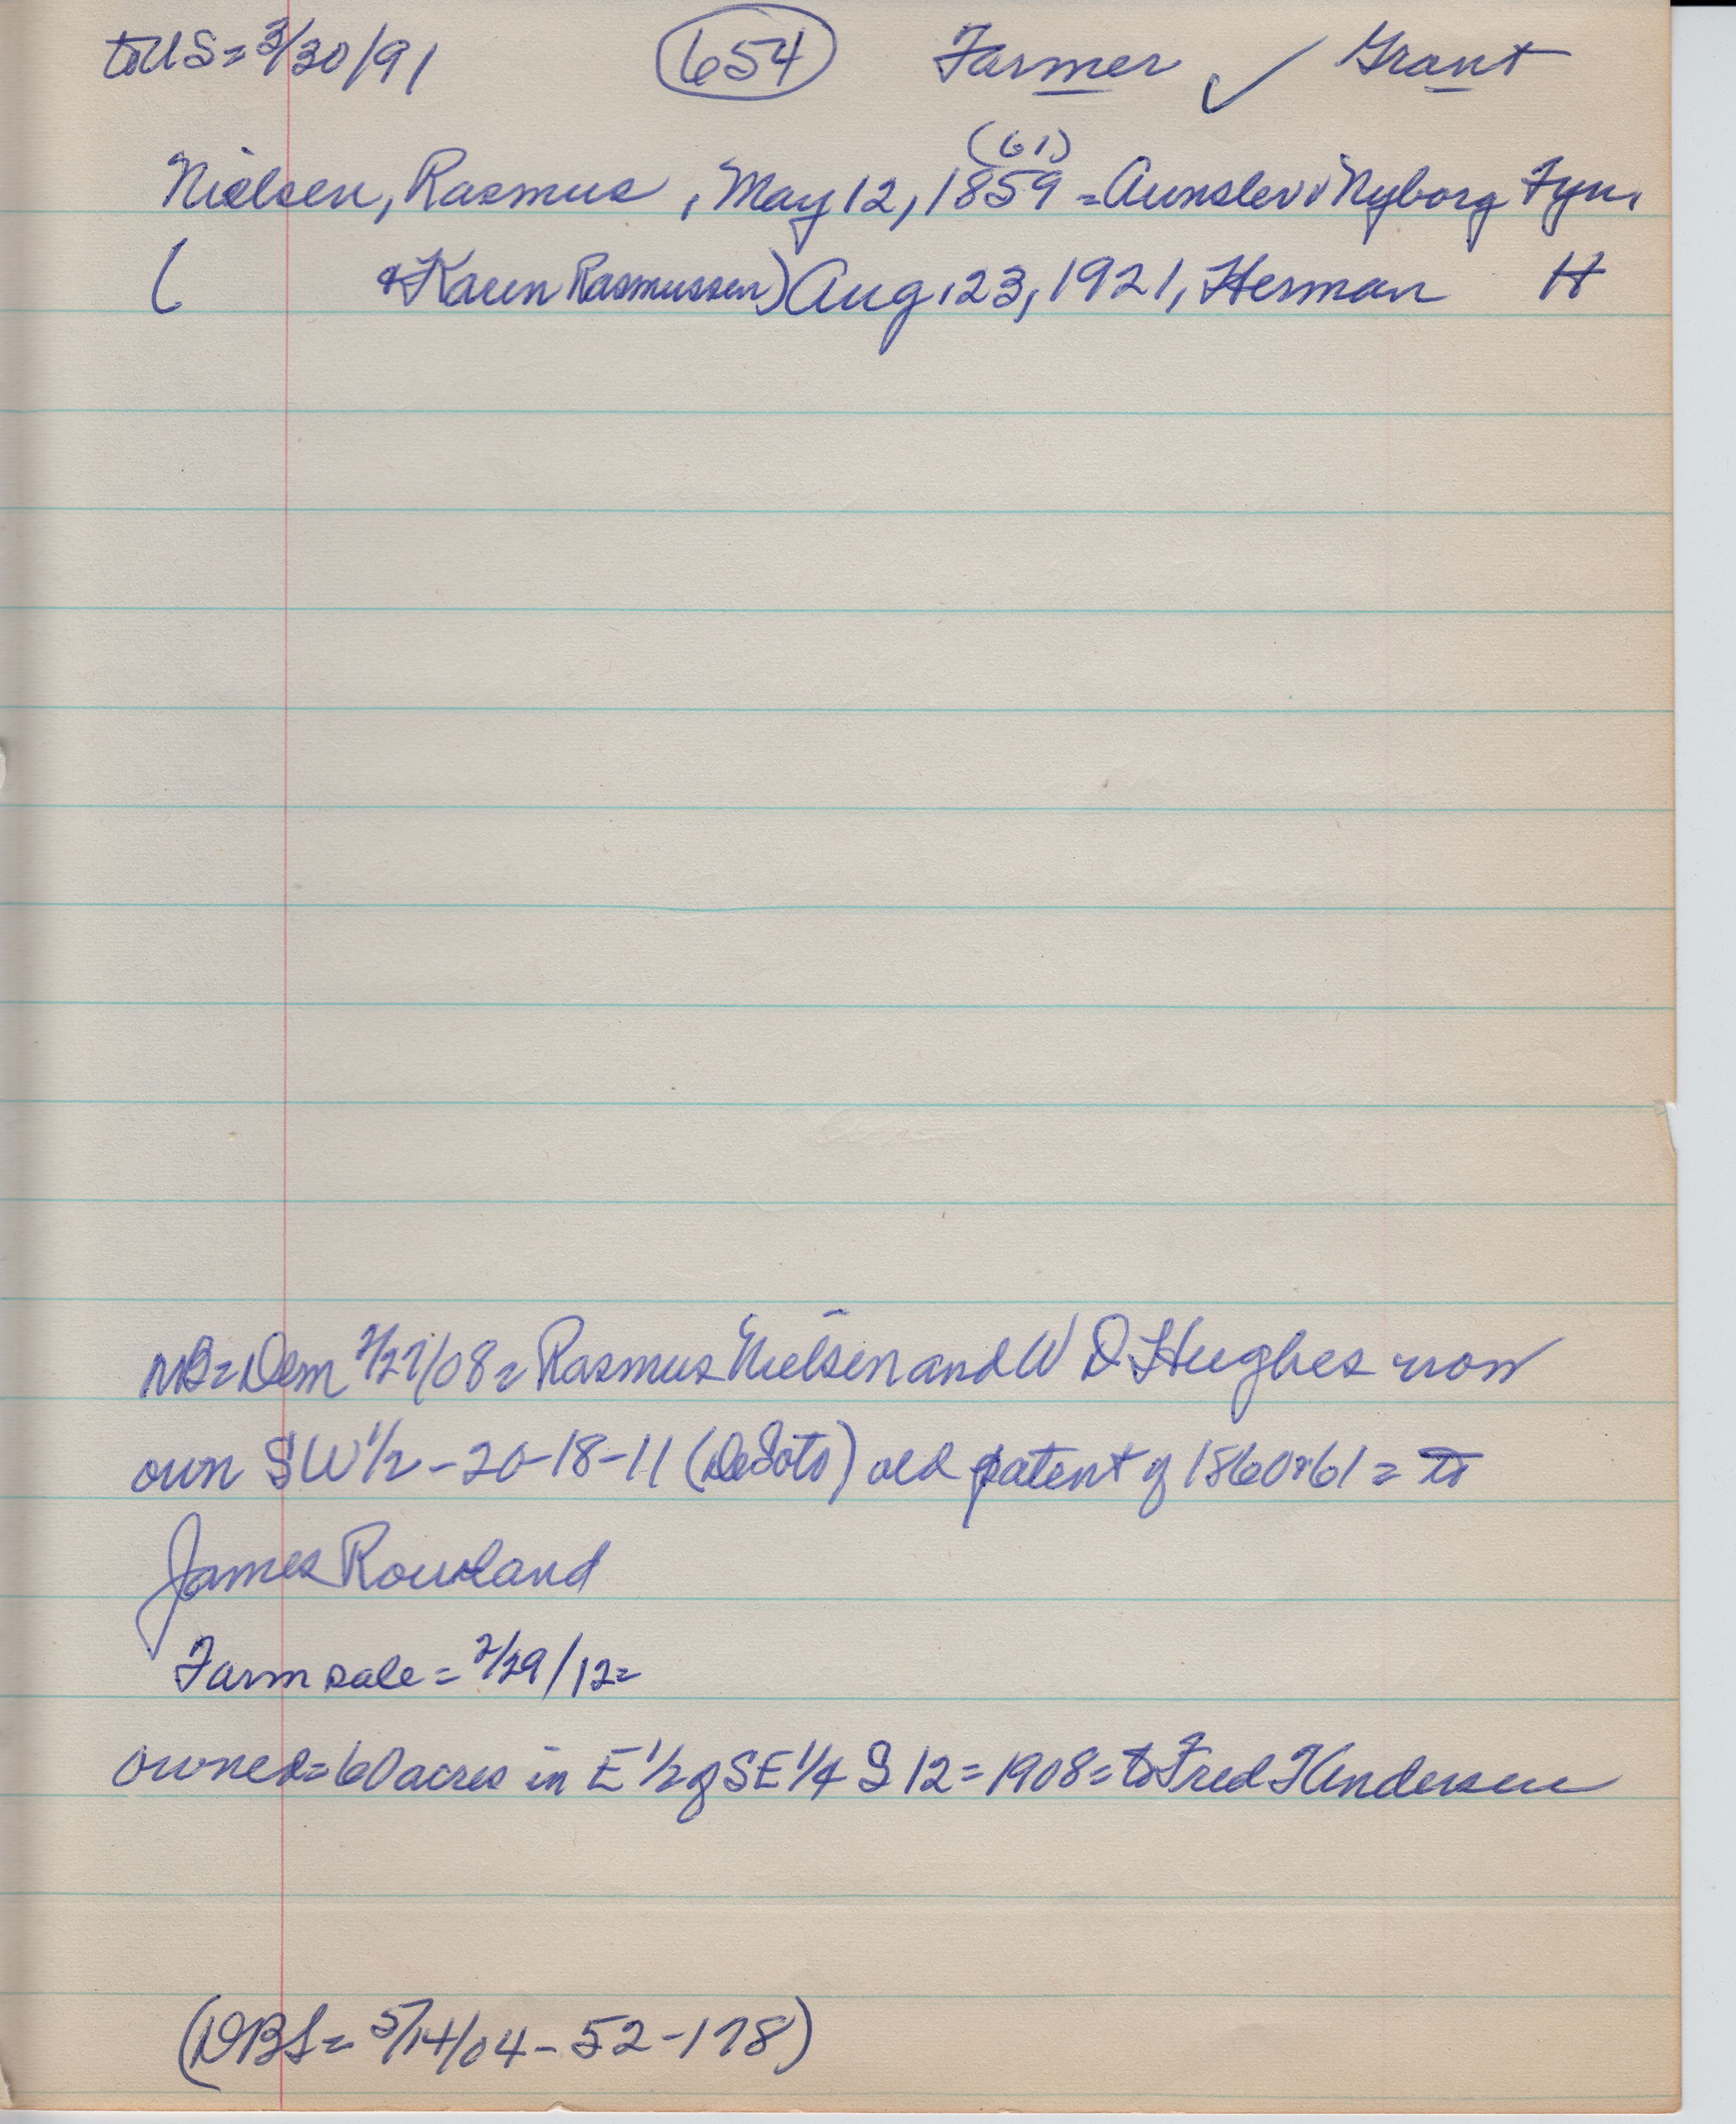 to US = 3/30/91 (654) Farmer ✓ Grant
(61)
Nielsen, Rasmus , May 12, 1859 = Aunslev Nyborg Fyn,
( & Karen Rasmussen) Aug. 23, 1921, Herman H
NB = Dem 2/27/08 = Rasmus Nielsen and W D Hughes now
own SW 1/2 - 20-18-11 (DeSoto) old patent of 1860 or 61 = to
James Rowland
Farm sale = 2/29/12 =
owned = 60 acres in E 1/2 of SE 1/4 S 12 = 1908 = to Fred Andersen
(DBS = 5/14/04 - 52 - 178)